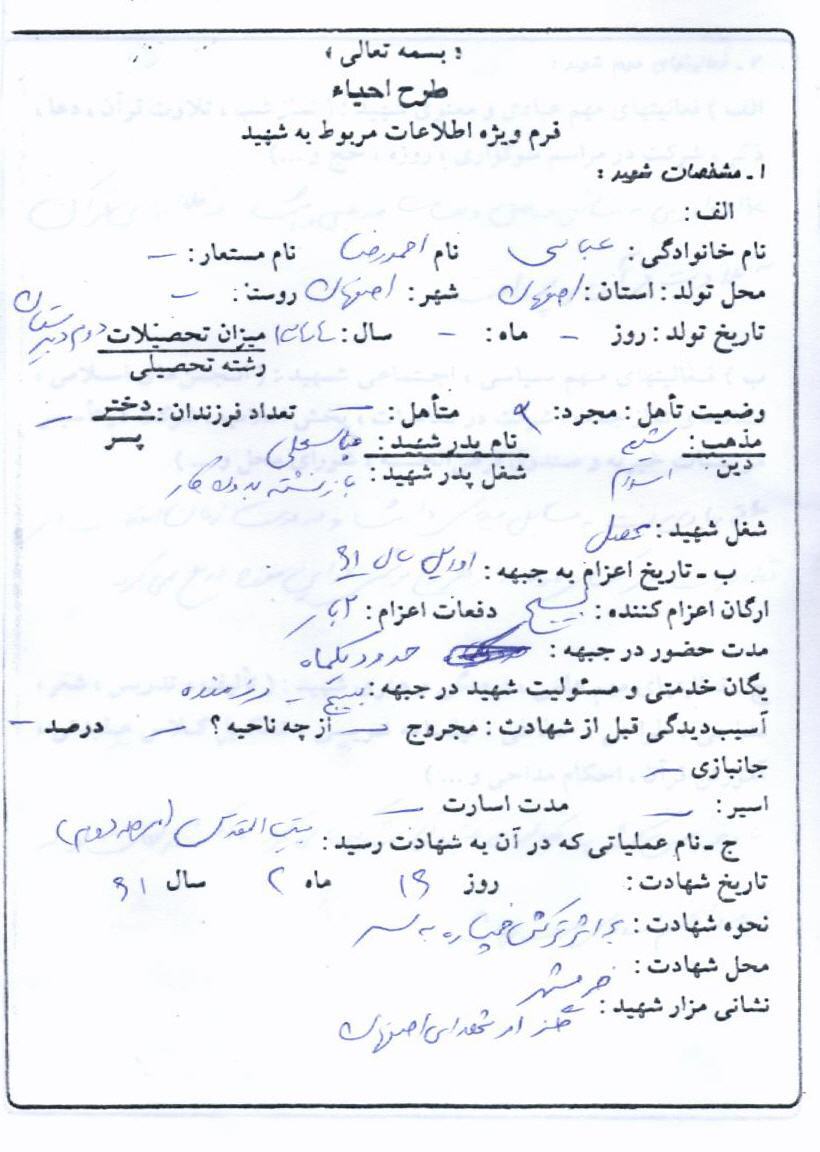 « بسمه تعالی »
طرح احیاء
فرم ویژه اطلاعات مربوط به شهید
۱ـ مشخصات شهید :
الف :
نام خانوادگی : عباسی نام احمدرضا نام مستعار : –
محل تولد : استان : اصفهان شهر : اصفهان روستا : –
تاریخ تولد : روز – ماه : – سال : میزان تحصیلات دوم دبیرستان
رشته تحصیلی
وضعیت تأهل : مجرد : متأهل : – تعداد فرزندان : دختر –
پسر
مذهب : شیعه نام پدر شهید : عباسعلی
دین اسلام شغل پدر شهید : بازنشسته بدون کار
شغل شهید : محصل
ب ـ تاریخ اعزام به جبهه : اوایل سال ۶۱
ارگان اعزام کننده : بسیج دفعات اعزام : ۲ بار
مدت حضور در جبهه : حدود یکماه
یگان خدمتی و مسئولیت شهید در جبهه : بسیج – رزمنده
آسیب‌دیدگی قبل از شهادت : مجروح – از چه ناحیه ؟ – درصد –
جانبازی –
اسیر : – مدت اسارت –
ج ـ نام عملیاتی که در آن به شهادت رسید : بیت المقدس (مرحله دوم)
تاریخ شهادت : روز ۱۹ ماه ۲ سال ۶۱
نحوه شهادت : بر اثر ترکش خمپاره به سر
محل شهادت : خرمشهر
نشانی مزار شهید : گلزار شهدای اصفهان